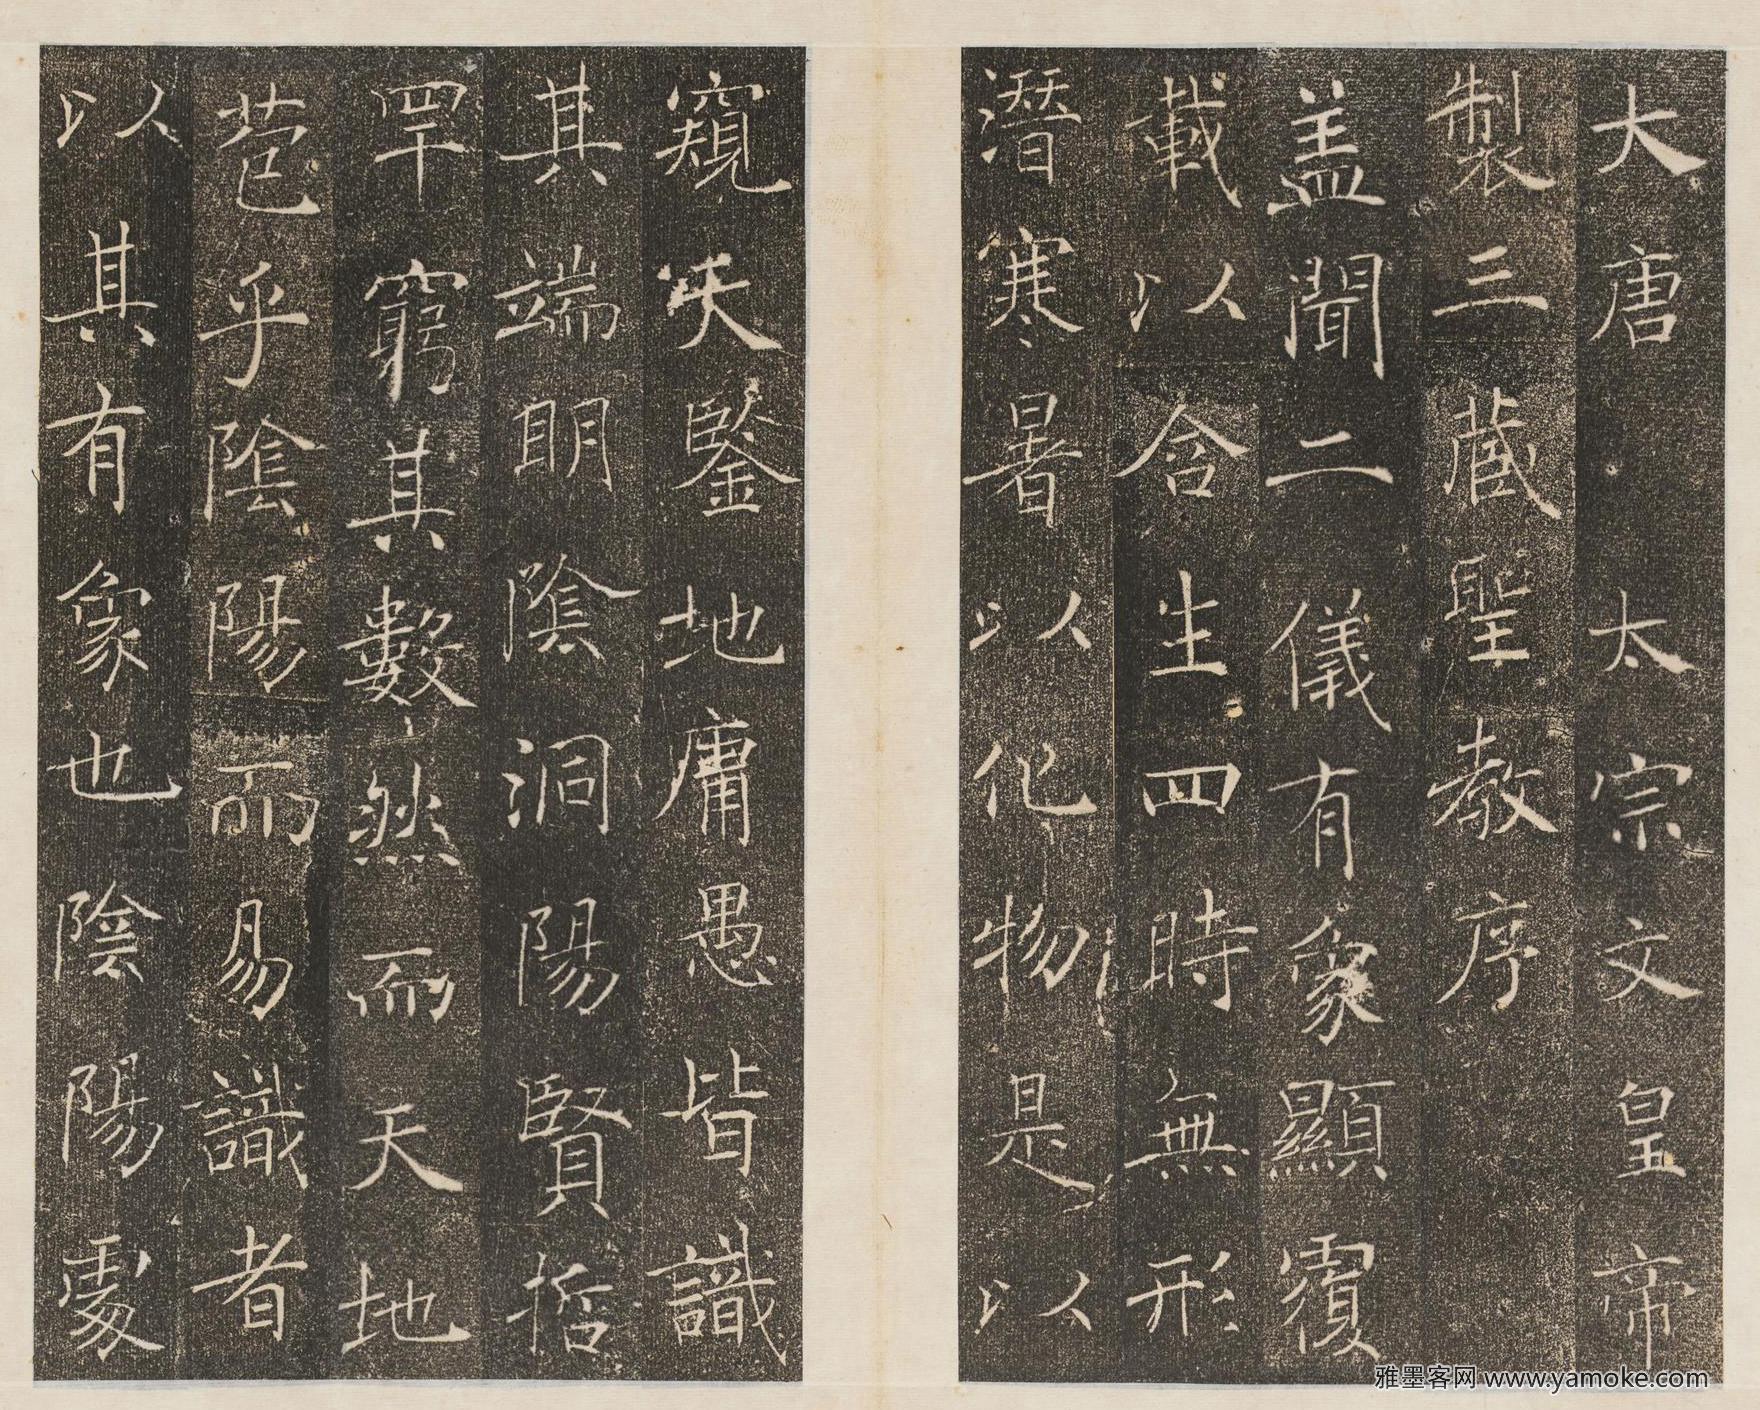 大唐太宗文皇帝
製三蔵聖教序
盖聞二儀有象顯覆
載以含生四時無形
潛寒暑以化物是以
窺天鑒地庸愚皆識
其端明陰洞陽賢哲
罕窮其數然而天地
苞乎陰陽而易識者
以其有象也陰陽處
雅墨客网 www.yamoke.com